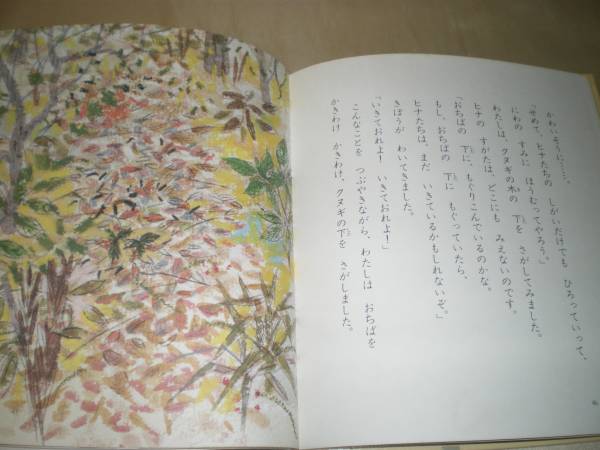 かわいそうに……。
「せめて、ヒナたちの しがいだけでも ひろっていって、
にわの すみに ほうむってやろう」。
わたしは、クヌギの木の 下を さがしてみました。
ヒナの すがたは、どこにも みえないのです。
「おちばの 下に、もぐりこんでいるのかな。
もし、おちばの 下に もぐっていたら、
ヒナたちは、まだ いきているかもしれないぞ。」
きぼうが わいてきました。
「いきておれよ！ いきておれよ！」
こんなことを つぶやきながら、わたしは おちばを
かきわけ かきわけ、クヌギの下を さがしました。